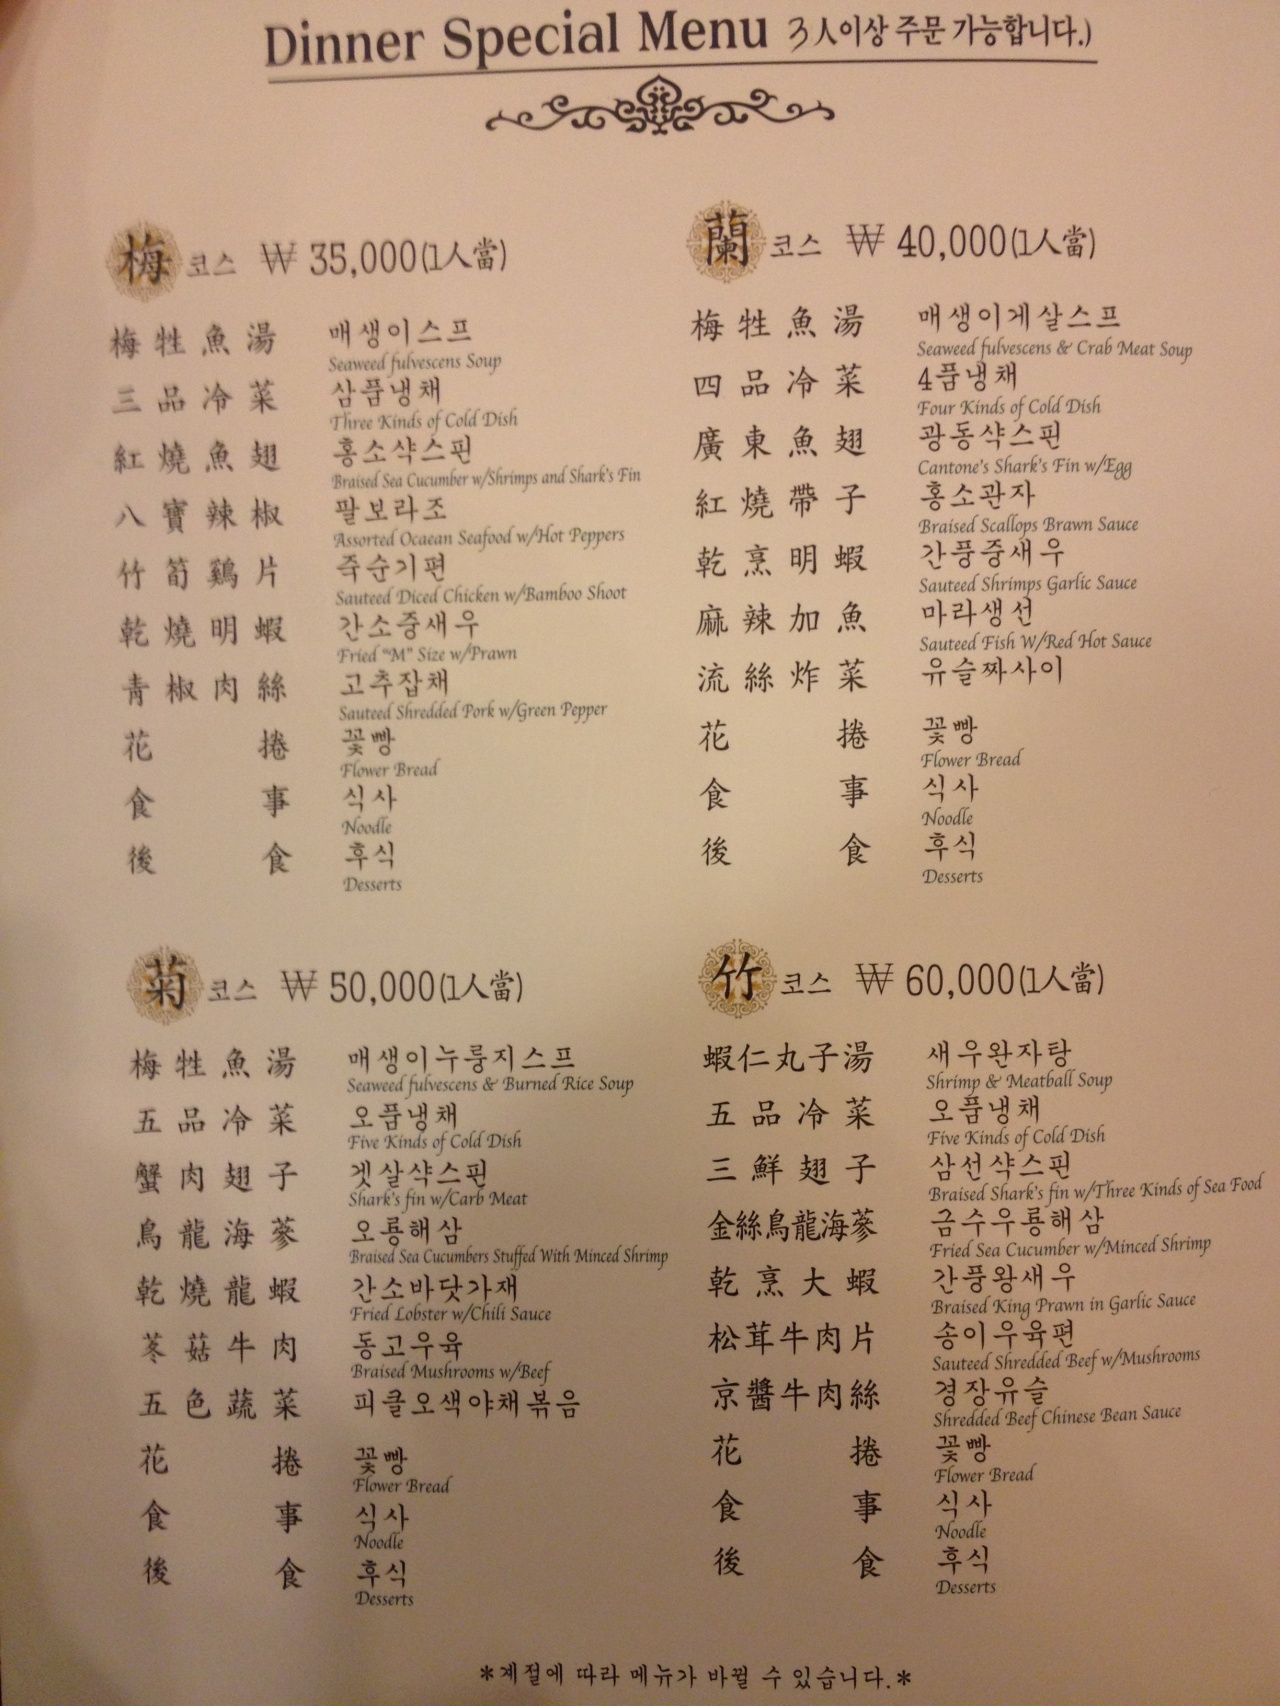 Dinner Special Menu 3人이상 주문 가능합니다.)
梅 코스 ₩ 35,000(1人當)
梅牲魚湯 매생이스프
Seaweed fulvescens Soup
三品冷菜 삼품냉채
Three Kinds of Cold Dish
紅燒魚翅 홍소샥스핀
Braised Sea Cucumber w/Shrimps and Shark's Fin
八寶辣椒 팔보라조
Assorted Ocaean Seafood w/Hot Peppers
竹筍鷄片 죽순기편
Sauteed Diced Chicken w/Bamboo Shoot
乾燒明蝦 간소중새우
Fried "M" Size w/Prawn
青椒肉絲 고추잡채
Sauteed Shredded Pork w/Green Pepper
花捲 꽃빵
Flower Bread
食事 식사
Noodle
後食 후식
Desserts
蘭 코스 ₩ 40,000(1人當)
梅牲魚湯 매생이게살스프
Seaweed fulvescens & Crab Meat Soup
四品冷菜 4품냉채
Four Kinds of Cold Dish
廣東魚翅 광동샥스핀
Cantone's Shark's Fin w/Egg
紅燒帶子 홍소관자
Braised Scallops Brawn Sauce
乾烹明蝦 간풍중새우
Sauteed Shrimps Garlic Sauce
麻辣加魚 마라생선
Sauteed Fish W/Red Hot Sauce
流絲炸菜 유슬짜사이
花捲 꽃빵
Flower Bread
食事 식사
Noodle
後食 후식
Desserts
菊 코스 ₩ 50,000(1人當)
梅牲魚湯 매생이누룽지스프
Seaweed fulvescens & Burned Rice Soup
五品冷菜 오품냉채
Five Kinds of Cold Dish
蟹肉翅子 겟살샥스핀
Shark's fin w/Carb Meat
烏龍海蔘 오룡해삼
Braised Sea Cucumbers Stuffed With Minced Shrimp
乾燒龍蝦 간소바닷가재
Fried Lobster w/Chili Sauce
苳菇牛肉 동고우육
Braised Mushrooms w/Beef
五色蔬菜 피클오색야채볶음
花捲 꽃빵
Flower Bread
食事 식사
Noodle
後食 후식
Desserts
竹 코스 ₩ 60,000(1人當)
蝦仁丸子湯 새우완자탕
Shrimp & Meatball Soup
五品冷菜 오품냉채
Five Kinds of Cold Dish
三鮮翅子 삼선샥스핀
Braised Shark's fin w/Three Kinds of Sea Food
金絲烏龍海蔘 금수우룡해삼
Fried Sea Cucumber w/Minced Shrimp
乾烹大蝦 간풍왕새우
Braised King Prawn in Garlic Sauce
松茸牛肉片 송이우육편
Sauteed Shredded Beef w/Mushrooms
京醬牛肉絲 경장유슬
Shredded Beef Chinese Bean Sauce
花捲 꽃빵
Flower Bread
食事 식사
Noodle
後食 후식
Desserts
*계절에 따라 메뉴가 바뀔 수 있습니다.*